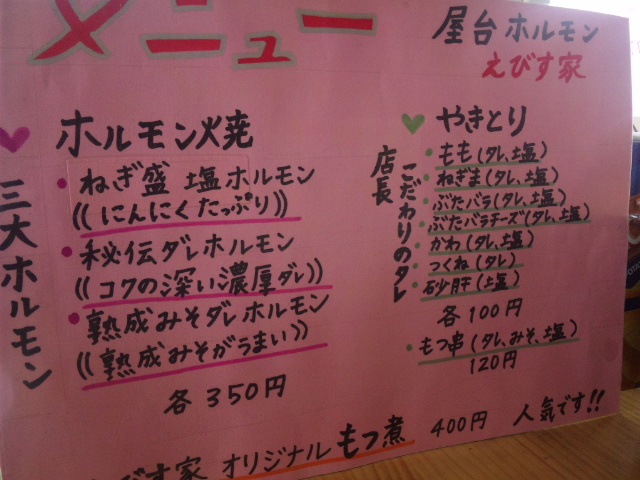 メニュー
屋台ホルモン
えびす家
三大ホルモン
ホルモン焼
・ねぎ盛 塩ホルモン
((にんにくたっぷり))
・秘伝ダレホルモン
((コクの深い濃厚ダレ))
・熟成みそダレホルモン
((熟成みそがうまい))
各350円
やきとり
店長
こだわりのタレ
・もも(タレ、塩)
・ねぎま(タレ、塩)
・ぶたバラ(タレ、塩)
・ぶたバラチーズ(タレ、塩)
・かわ(タレ、塩)
・つくね(タレ)
・砂肝(塩)
各100円
・もつ串(タレ、みそ、塩)
120円
びす家 オリジナル もつ煮 400円 人気です!!